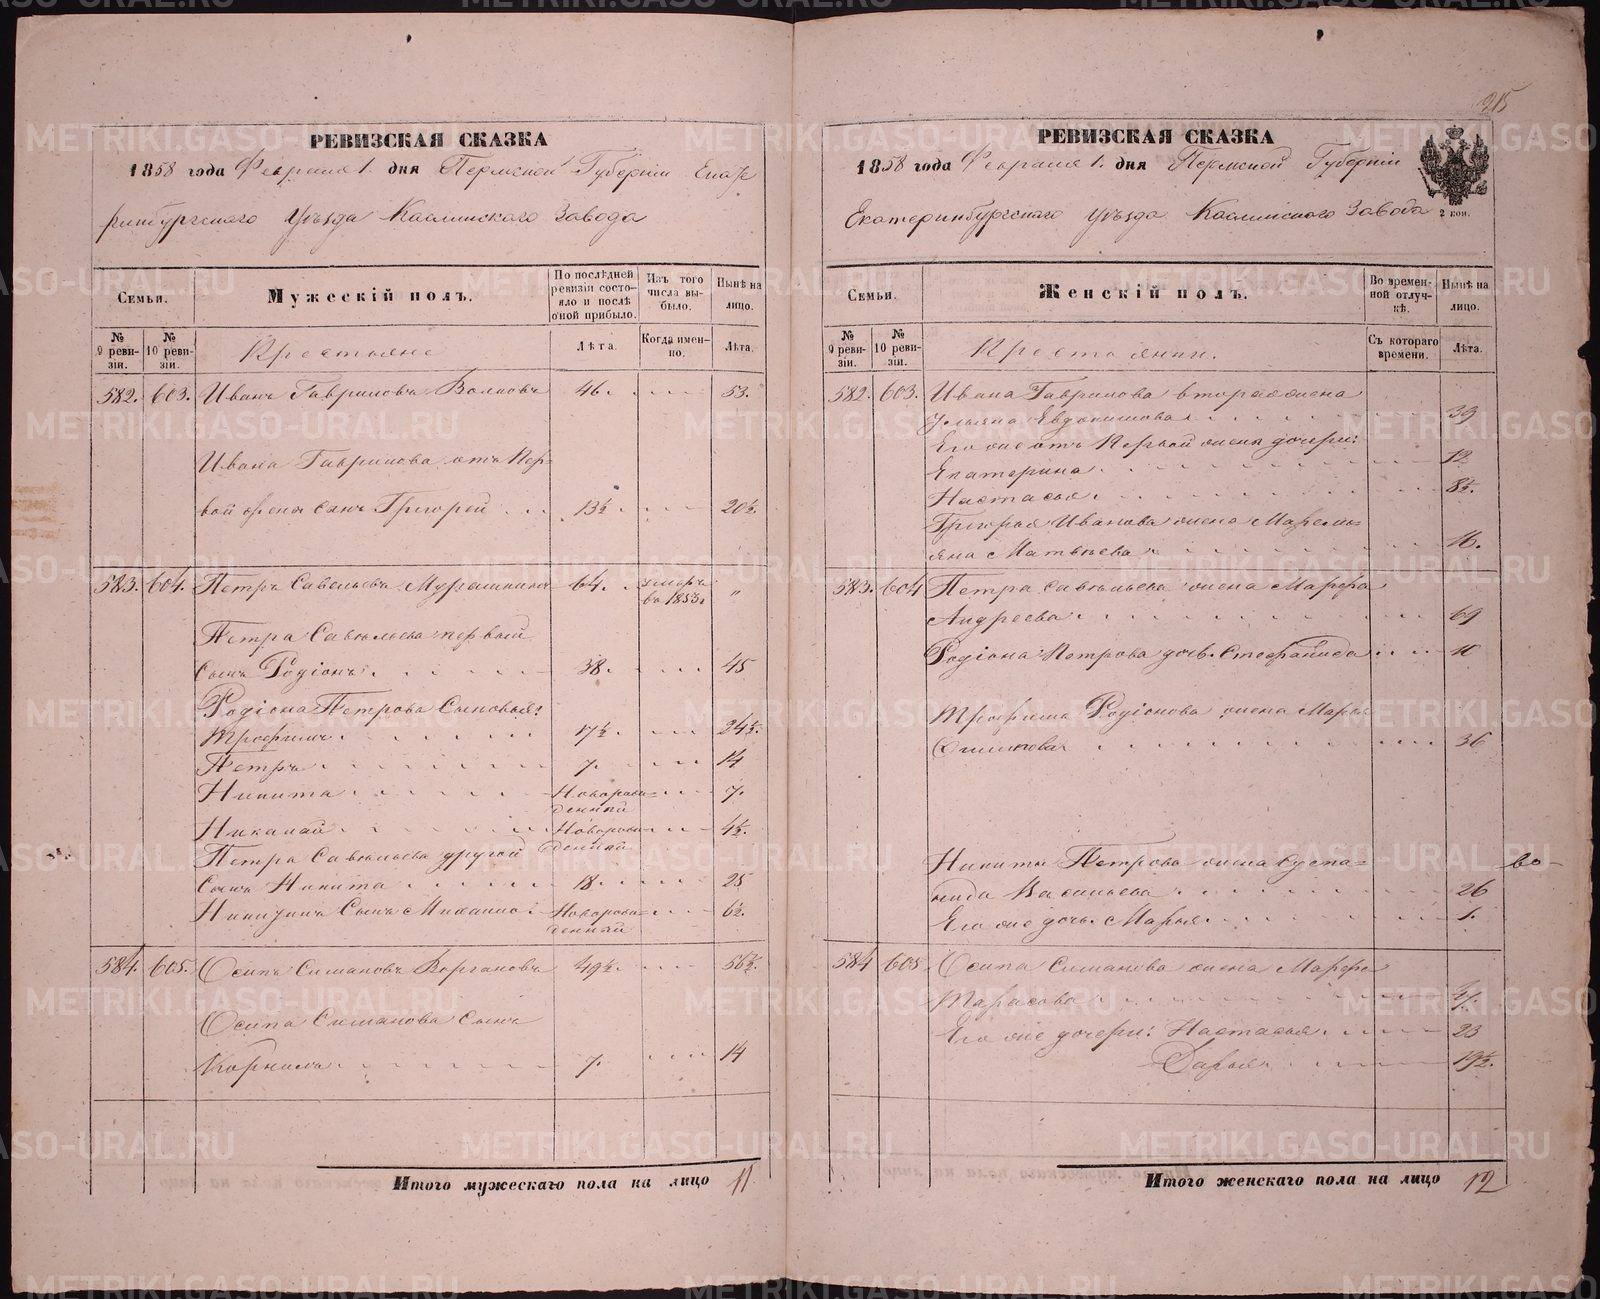 215
РЕВИЗСКАЯ СКАЗКА
1858 года Февраля 1. дня Пермской Губерніи Екате
ринбургскаго Уѣзда Каслинскаго Завода
Семьи.
Мужескій полъ.
По послѣдней
ревизіи состо-
яло и послѣ
оной прибыло.
Изъ того
числа вы-
было.
Нынѣ на
лицо.
№
9 реви-
зіи.
№
10 реви-
зіи.
Крестьяне
Лѣта.
Когда имен-
но.
Лѣта.
582. 603. Иванъ Гавриловъ 46. 53.
Ивана Гаврилова отъ пер-
вой жены сынъ Григорей 13½ 20½.
583. 604. Петръ Савельевъ 64. умеръ
въ 1853г "
Петра Савельева первый
сынъ Родіонъ 38. 45
Родіона Петрова сыновья:
Трофимъ 17½. 24½.
Петръ 7. 14
Никита Новорож- 7.
денный
Николай Новорож- 4½.
денный
Петра Савельева другой
сынъ Никита 18. 25
Никиты сынъ Михаило Новорож- 6½.
денный
584. 605. Осипъ Симановъ 49½. 56½.
Осипа Симанова сынъ
Корнилъ 7. 14
Итого мужескаго пола на лицо 11
РЕВИЗСКАЯ СКАЗКА
1858 года Февраля 1. дня Пермской Губерніи
Екатеринбургскаго Уѣзда Каслинскаго Завода
2 коп.
Семьи.
Женскій полъ.
Во времен-
ной отлуч-
кѣ.
Нынѣ на
лицо.
№
9 реви-
зіи.
№
10 реви-
зіи.
Крестьянки.
Съ котораго
времени.
Лѣта.
582. 603. Ивана Гаврилова вторая жена
Ульяна Евдокимова 39
Его же отъ первой жены дочери:
Екатерина 12
Настасья 8½.
Григорья Иванова жена Маремь-
яна Матвѣева 16.
583. 604 Петра Савельева жена Марфа
Андреева 69
Родіона Петрова дочь Стефанида 11
Трофима Родіонова жена Марья
36
Никиты Петрова жена
Васильева 26
Его же дочь Марья 1.
584 605 Осипа Симанова жена Марфа
Тарасова
Его же дочери: Настасья 23
Дарья 19½.
Итого женскаго пола на лицо 12
METRIKI.GASO-URAL.RU